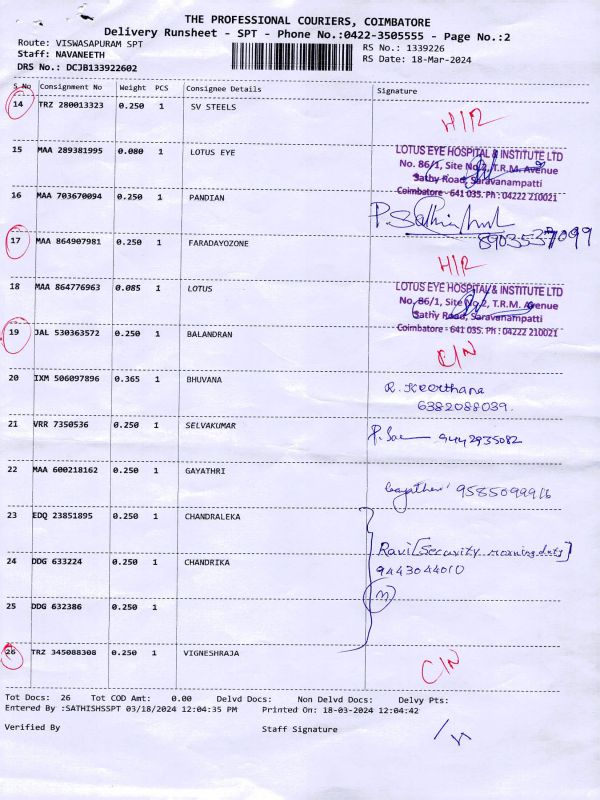 THE PROFESSIONAL COURIERS, COIMBATORE
Delivery Runsheet - SPT - Phone No.:0422-3505555 - Page No.:2
Route: VISWASAPURAM SPT
Staff: NAVANEETH
DRS No.: DCJB133922602
RS No.: 1339226
RS Date: 18-Mar-2024
S No Consignment No Weight PCS Consignee Details Signature
14 TRZ 280013323 0.250 1 SV STEELS
15 MAA 289381995 0.080 1 LOTUS EYE
LOTUS EYE HOSPITAL & INSTITUTE LTD
No. 86/1, Site No.2, T.R.M. Avenue
Sathy Road, Saravanampatti
Coimbatore - 641 035. Ph : 04222 210021
16 MAA 703670094 0.250 1 PANDIAN
17 MAA 864907981 0.250 1 FARADAYOZONE
18 MAA 864776963 0.085 1 LOTUS
LOTUS EYE HOSPITAL & INSTITUTE LTD
No. 86/1, Site No.2, T.R.M. Avenue
Sathy Road, Saravanampatti
Coimbatore - 641 035. Ph : 04222 210021
19 JAL 530363572 0.250 1 BALANDRAN
C/N
20 IXM 506097896 0.365 1 BHUVANA
R. Keerthana
6382088039.
21 VRR 7350536 0.250 1 SELVAKUMAR
9442935082
22 MAA 600218162 0.250 1 GAYATHRI
Gayathri 9585099916
23 EDQ 23851895 0.250 1 CHANDRALEKA
24 DDG 633224 0.250 1 CHANDRIKA
Ravi [Security morning
9443044010
25 DDG 632386 0.250 1
26 TRZ 345088308 0.250 1 VIGNESHRAJA
C/N
Tot Docs: 26 Tot COD Amt: 0.00 Delvd Docs: Non Delvd Docs: Delvy Pts:
Entered By :SATHISHSSPT 03/18/2024 12:04:35 PM Printed On: 18-03-2024 12:04:42
Verified By Staff Signature